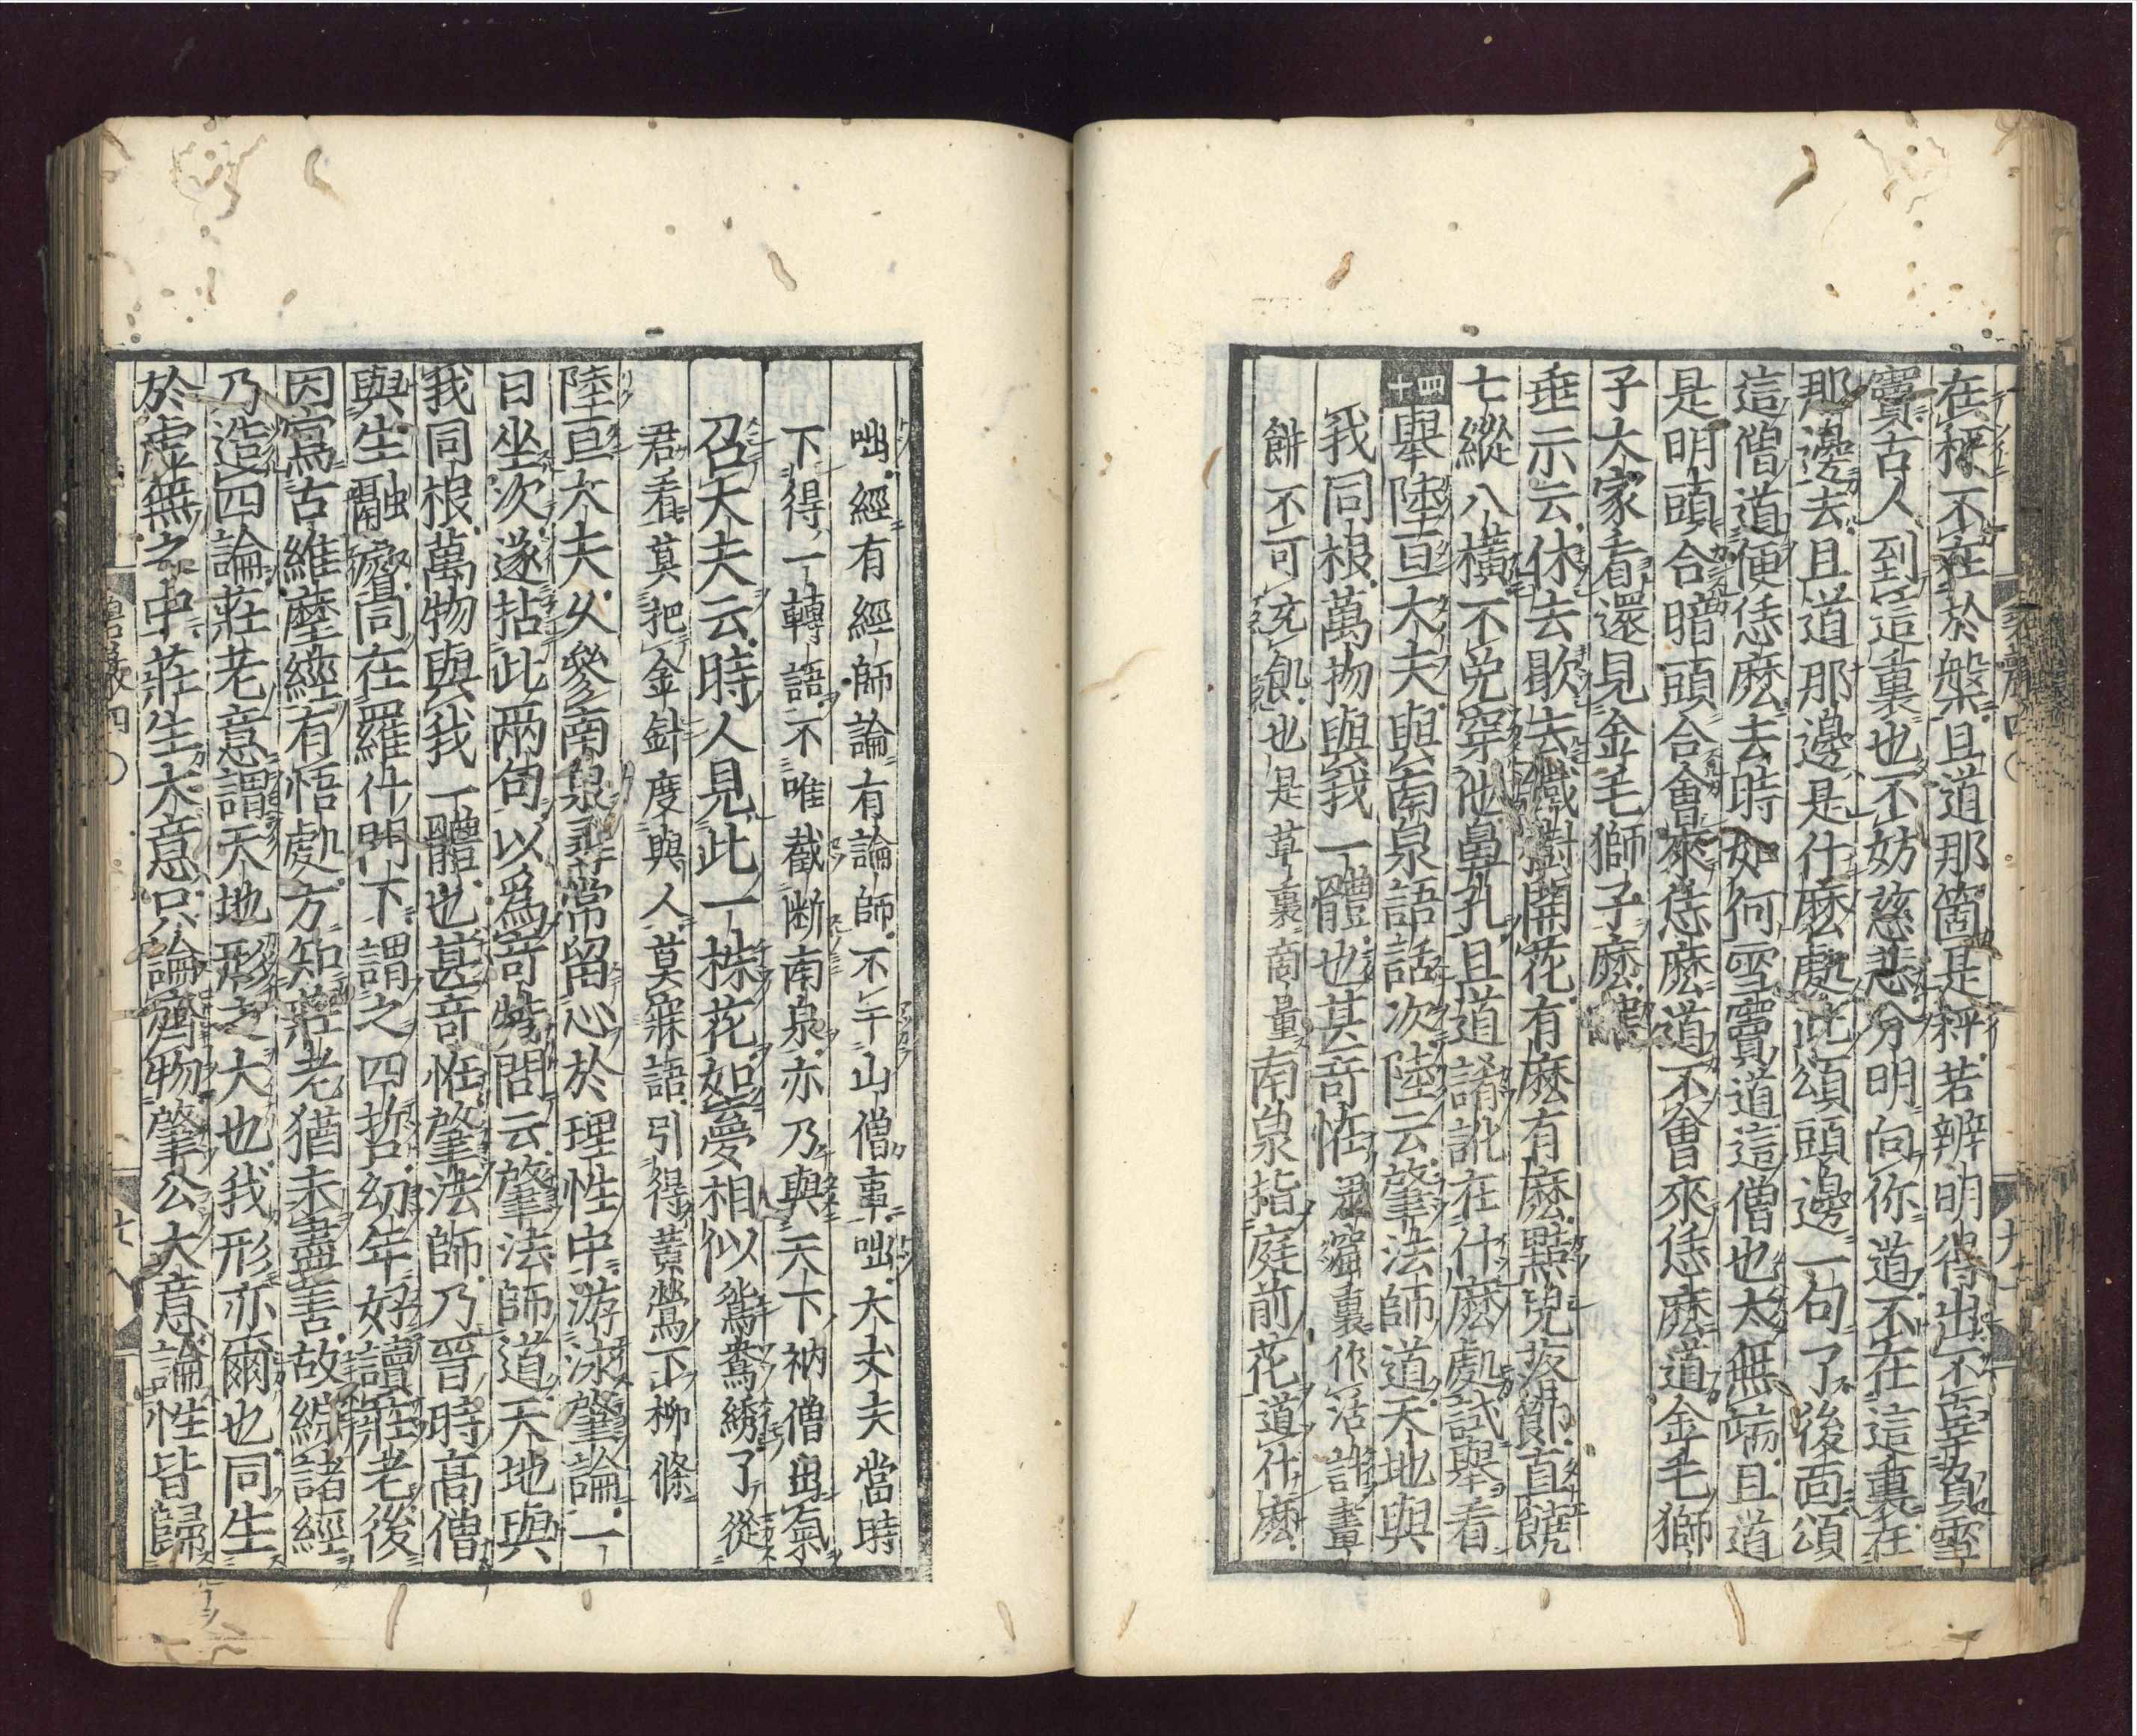 在秤不在於槃且道那箇是秤若辨明得出不辜負雪
竇古人到這裏也不妨慈悲分明向你道不在這裏在
那邊去且道那邊是什麼處此頌頭邊一句了後面頌
這僧道便恁麼去時如何雪竇道這僧也太無端且道
是明頭合暗頭合會來恁麼道不會來恁麼道金毛獅
子大家看還見金毛獅子麼瞎
垂示云休去歇去鐵樹開花有麼有麼黠兒落節直饒
七縱八橫不免穿他鼻孔且道誵訛在什麼處試舉看
四十舉陸亘大夫與南泉語話次陸云肇法師道天地與
我同根萬物與我一體也甚奇恠鬼窟裏作活計畫
餅不可充飢也是草裏商量南泉指庭前花道什麼
咄經有經師論有論師不干山僧事咄大丈夫當時
下得一轉語不唯截断南泉亦乃與天下衲僧出氣
召大夫云時人見此一株花如夢相似鴛鴦綉了從
君看莫把金針度與人莫寐語引得黃鶯下柳條
陸亘大夫久參南泉尋常留心於理性中游泳肇論一
日坐次遂拈此两句以爲奇特問云肇法師道天地與
我同根萬物與我一體也甚奇恠肇法師乃晉時高僧
與生融叡同在羅什門下謂之四哲幼年好讀莊老後
因寫古維摩經有悟處方知莊老猶未盡善故綜諸經
乃造四論莊老意謂天地形之大也我形亦爾也同生
於虚無之中莊生大意只論齊物肇公大意論性皆歸